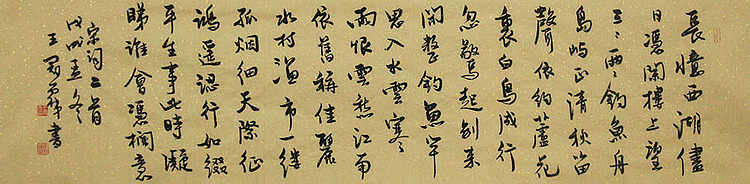 長憶西湖儘
日憑闌樓上望
三〻兩〻釣魚舟
島嶼正清秋笛
聲依約蘆花
裏白鳥成行
忽驚起別來
閒整釣魚竿
思入水雲寒
雨恨雲愁江南
依舊稱佳麗
水村漁市一縷
孤烟細天際征
鴻遥認行如綴
平生事此時凝
睇誰會憑欄意
宋詞二首
戊戌孟冬
王 書